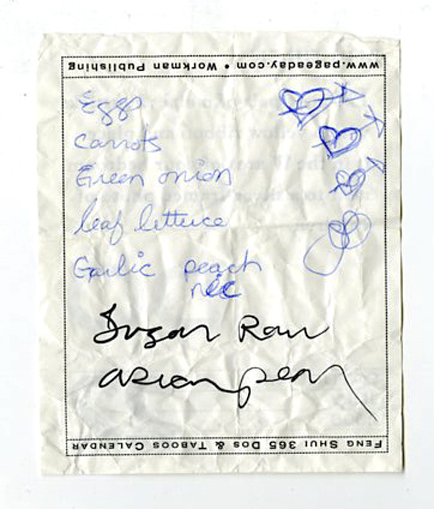 www.pageaday.com • Workman Publishing
Eggs
Carrots
Green onion
leaf lettuce
Garlic peach
Sugar Raw
asian pear
Feng Shui 365 Dos & Taboos Calendar